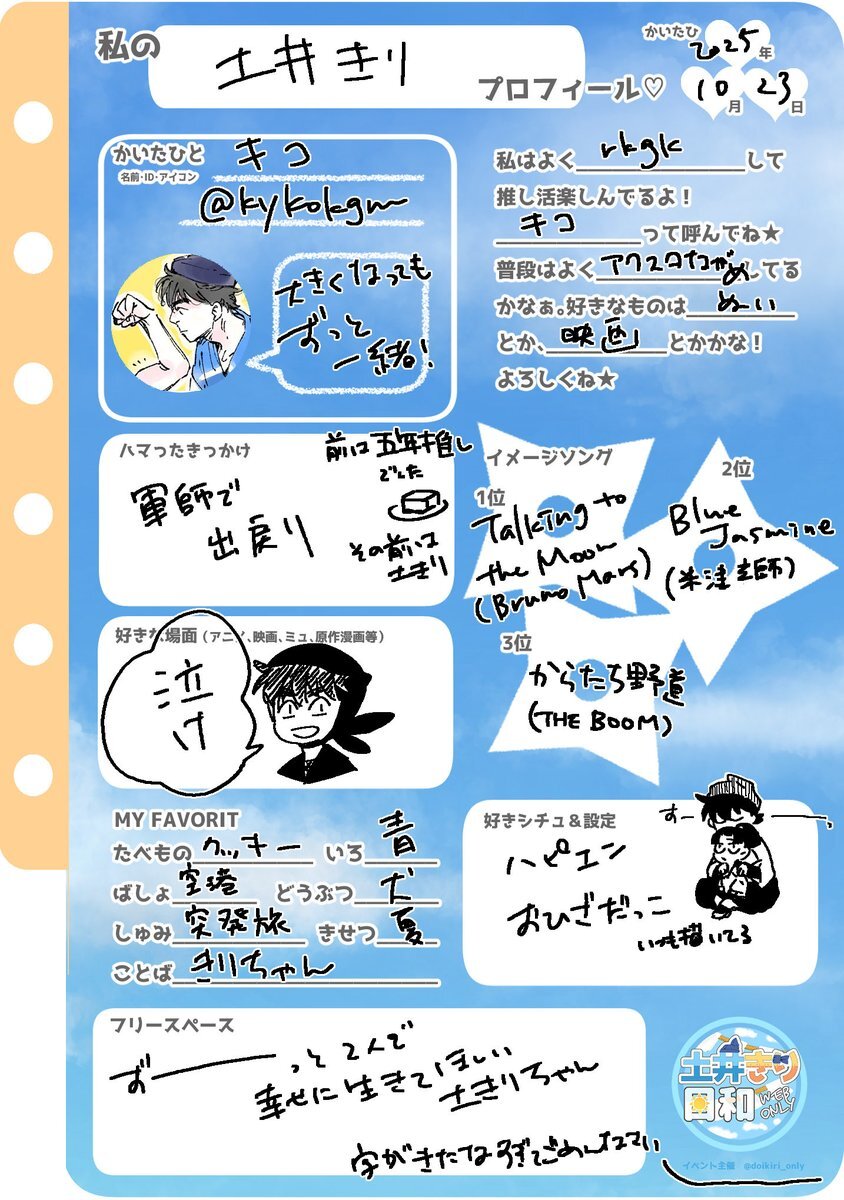 私の 土井きり プロフィール♡
かいたひ 2025年
10月 23日
かいたひと キコ
名前・ID・アイコン
@kykokgm
大きくなっても
ずっと
一緒！
私はよく rkgk して
推し活楽しんでるよ！
キコ って呼んでね★
普段はよく アクスタながめ してる
かなぁ。好きなものは ぬい
とか、 映画 とかかな！
よろしくね★
ハマったきっかけ
軍師で
出戻り
前は五年推し
でした
その前は
土きり
イメージソング
1位
Talking to
the Moon
(Bruno Mars)
2位
Blue
Jasmine
(米津玄師)
3位
からたち野道
(THE BOOM)
好きな場面（アニメ、映画、ミュ、原作漫画等）
泣け
MY FAVORIT
たべもの クッキー いろ 青
ばしょ 空港 どうぶつ 犬
しゅみ 突発旅 きせつ 夏
ことば きりちゃん
好きシチュ＆設定
すー
ハピエン
おひざだっこ
いつも描いてる
フリースペース
ずーーーっと2人で
幸せに生きてほしい
土きりちゃん
字がきたなすぎてごめんなさい
土井きり
日和
WEB
ONLY
イベント主催 @doikiri_only